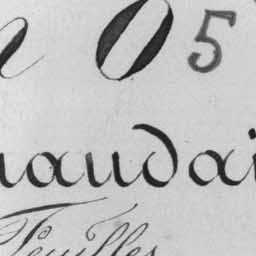 n 05
naudai
Feuilles